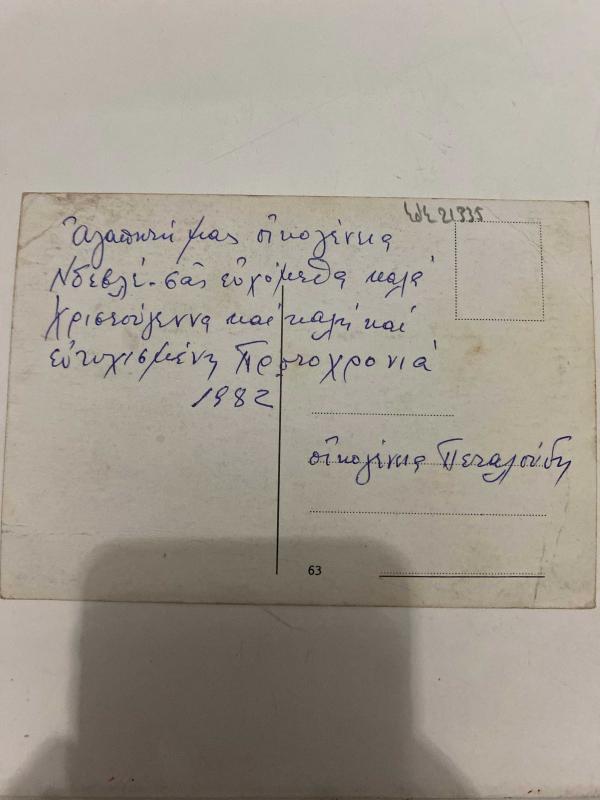 Ἀγαπητή μας οἰκογένεια
Ντεβλέ. σᾶς εὐχόμεθα καλά
Χριστούγεννα καί καλή καί
εὐτυχισμένη Πρωτοχρονιά
1982
οἰκογένεια Πεταλούδη
63